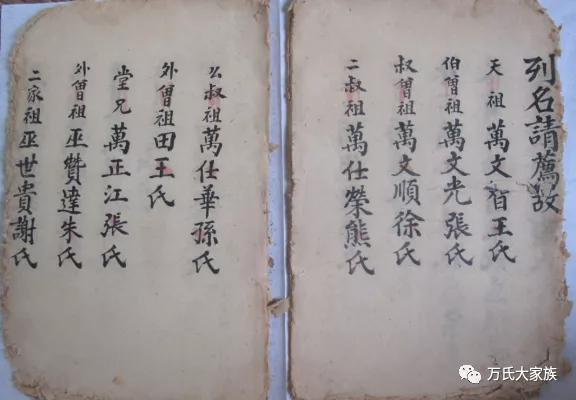 列名請薦故
天祖萬文智王氏
伯曾祖萬文光張氏
叔曾祖萬文順徐氏
二叔祖萬仕榮熊氏
公叔祖萬仕華孫氏
外曾祖田王氏
堂兄萬正江張氏
外曾祖巫贊達朱氏
二家祖巫世貴謝氏
万氏大家族